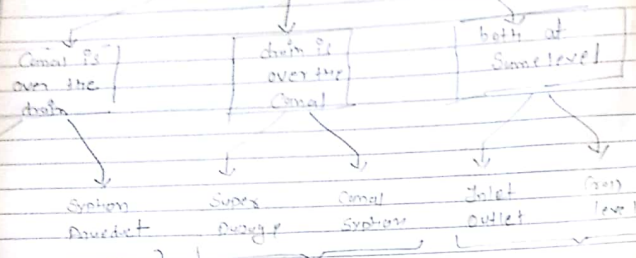 Canal is
over the
drain
drain is
over the
Canal
both at
Same level
Syphon
Aqueduct
Super
Passage
Canal
Syphon
Inlet
outlet
Cross
level